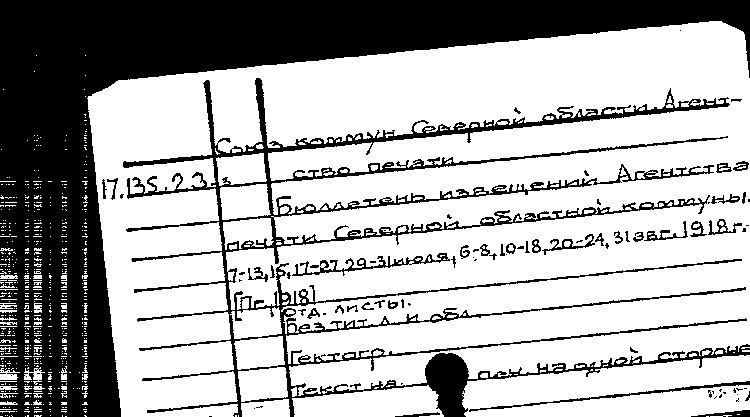 Союз коммун Северной области. Агент-
17.135.2.3.-3 ство печати.
Бюллетень извещений Агентства
печати Северной областной коммуны.
7-13, 15, 17-27, 29-31 июля, 6-8, 10-18, 20-24, 31 авг. 1918 г.
[Пг., 1918]
отд. листы.
Без тит. л. и обл.
Гектогр.
Текст на печ. на одной стороне